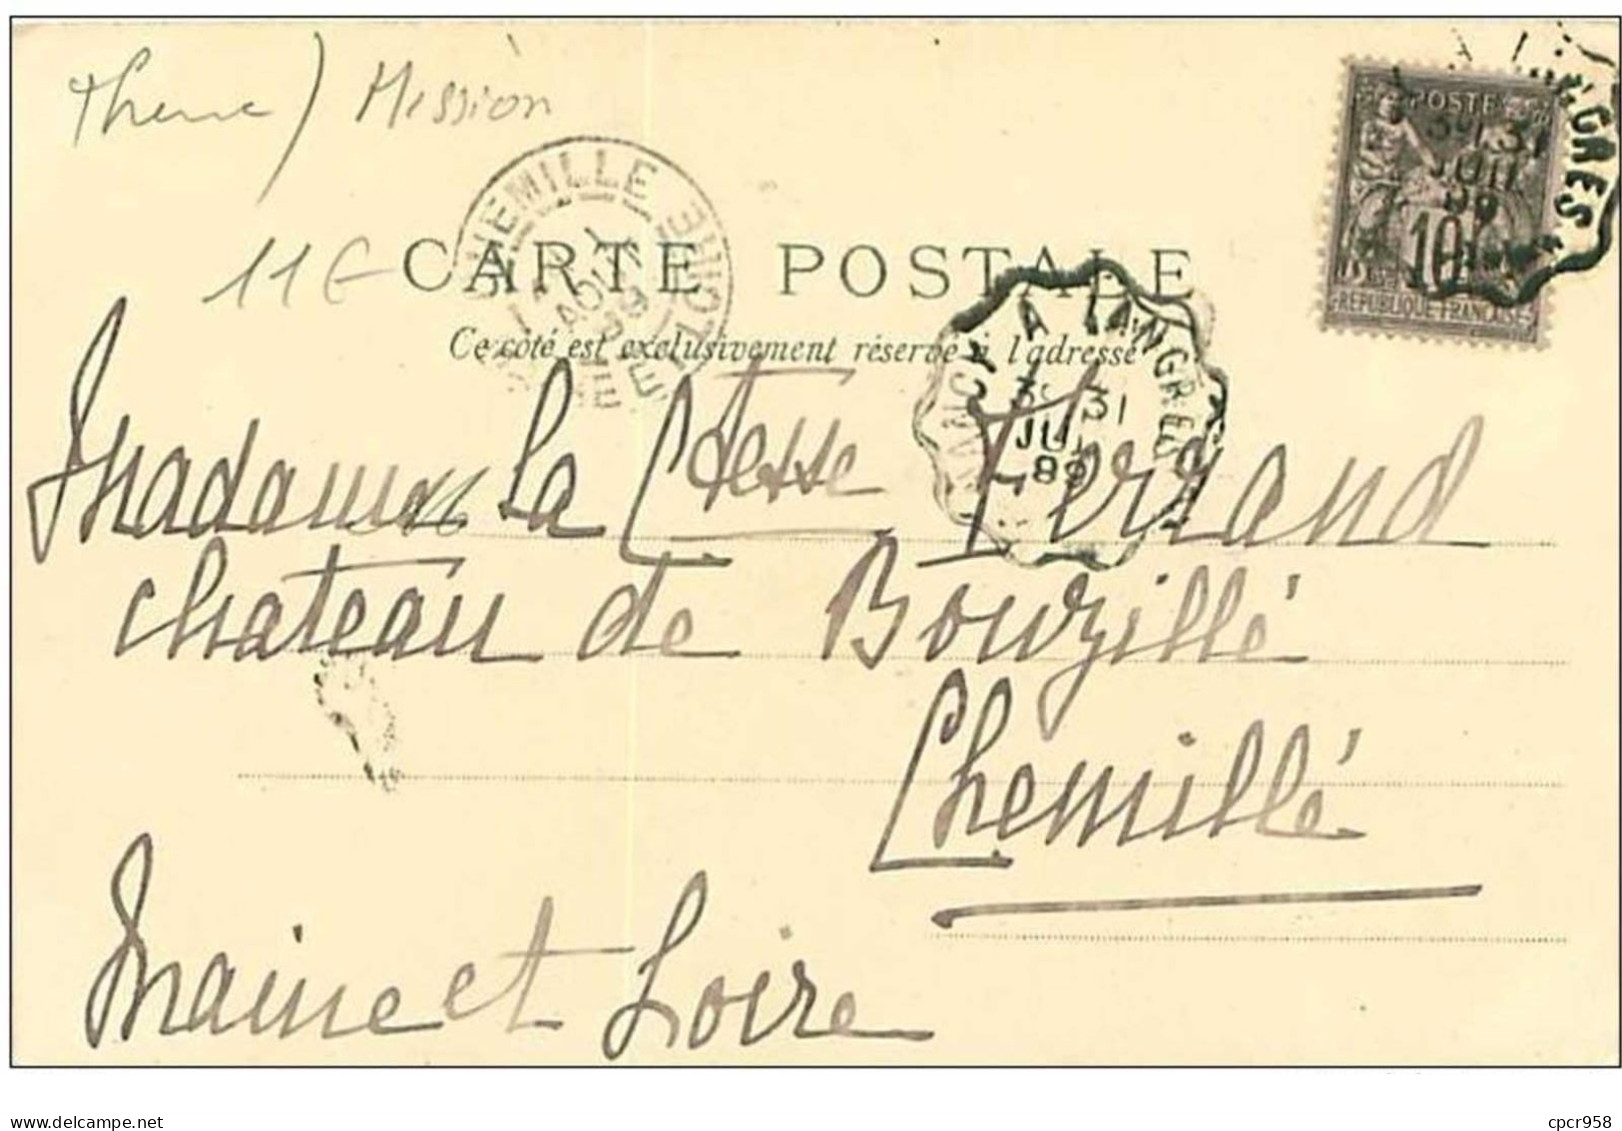 Theme) Mission
11€
CARTE POSTALE
Ce côté est exclusivement réservé à l'adresse
CHEMILLE
1
AOUT
99
MAINE ET LOIRE
NANCY A LANGRES
3º 31
JUIL
99
A LANGRES
3º 31
JUIL
99
POSTES
10
REPUBLIQUE FRANÇAISE
Madame la Ctesse Ferrand
chateau de Bouzillé
Chemillé
Maine et Loire
www.delcampe.net
cpcr958